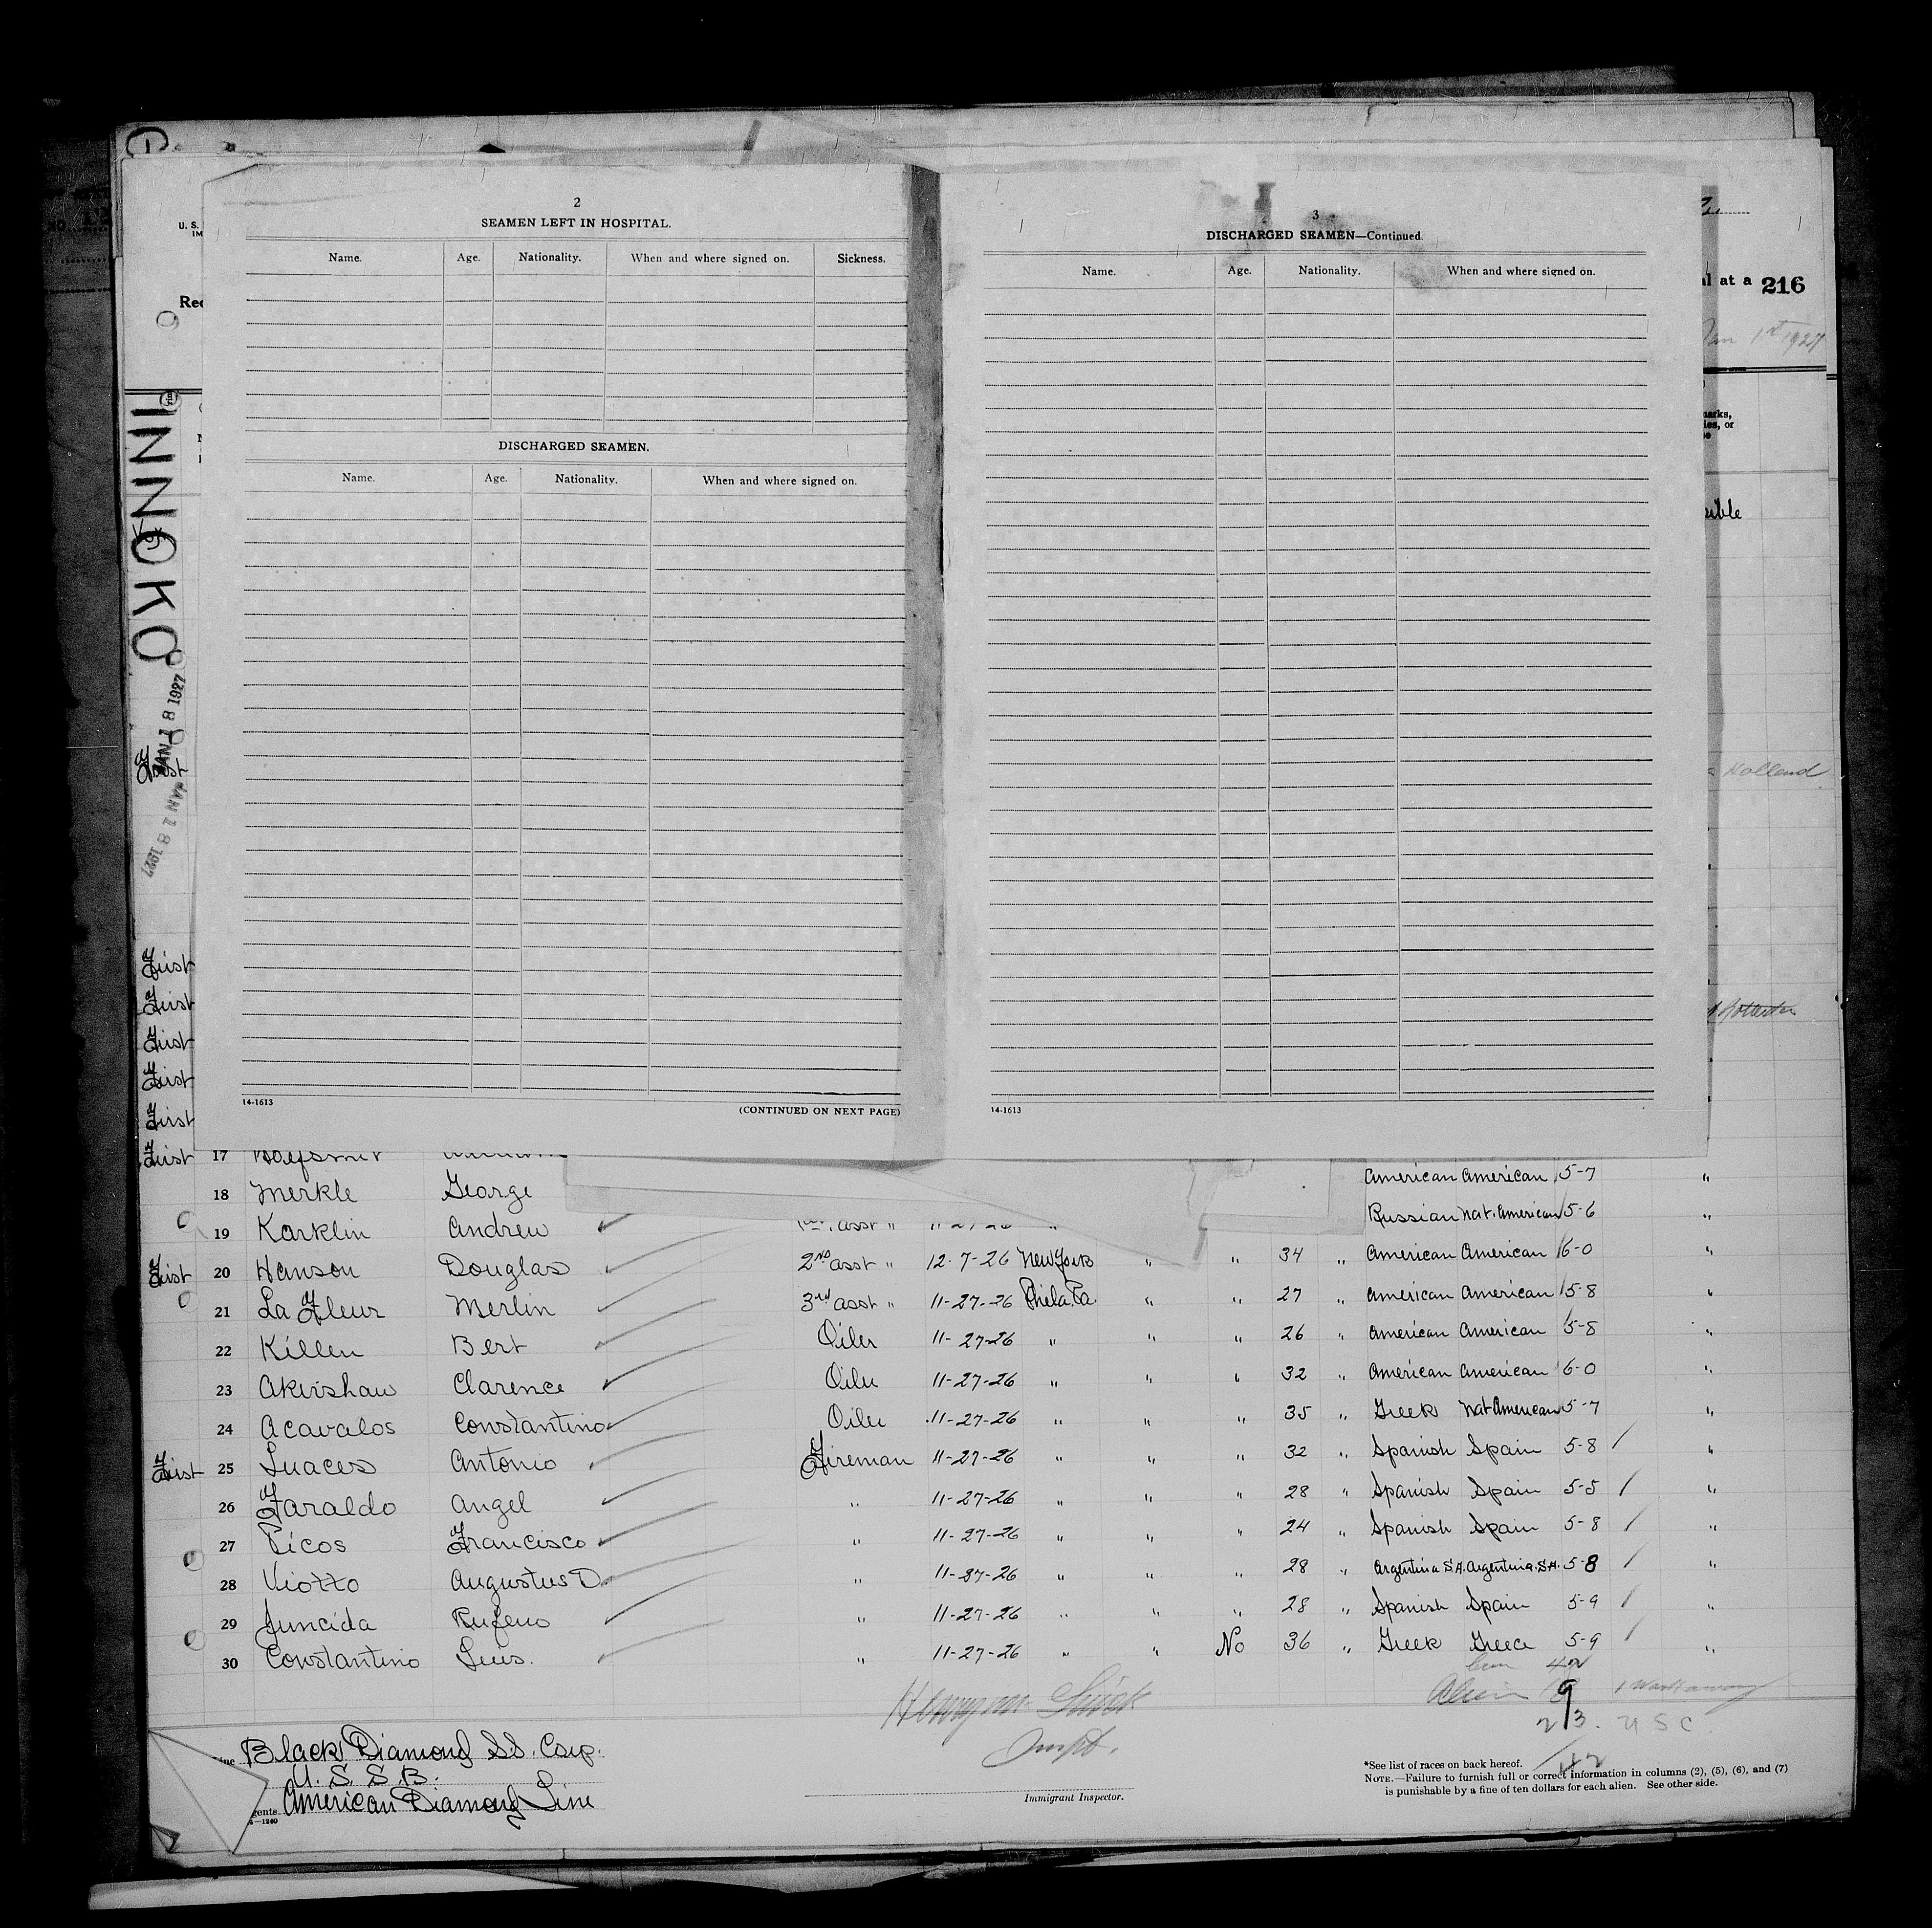 2
SEAMEN LEFT IN HOSPITAL.
Name. Age. Nationality. When and where signed on. Sickness.
DISCHARGED SEAMEN.
Name. Age. Nationality. When and where signed on.
14-1613 (CONTINUED ON NEXT PAGE)
3
DISCHARGED SEAMEN—Continued.
Name. Age. Nationality. When and where signed on.
14-1613
U. S.
at a 216
Jan 1st 1927
INNOKO
JAN 18 1927
JAN 18 1927
First
Holland
First
First
First
First
First
First 17
American American 5-7 "
18 Merkle George Russian Nat. American 5-6 "
19 Karklin Andrew asst " 11-27-26 "
First 20 Hanson Douglas 2ND asst " 12-7-26 New York " " 34 " American American 6-0 "
21 La Fleur Merlin 3rd asst " 11-27-26 Phila. Pa. " " 27 " American American 5-8 "
22 Killen Bert Oiler 11-27-26 " " " 26 " American American 5-8 "
23 Akirshaw Clarence Oiler 11-27-26 " " " 32 " American American 6-0 "
24 Acavalos Constantino Oiler 11-27-26 " " " 35 " Greek Nat American 5-7 "
First 25 Luaces Antonio Fireman 11-27-26 " " " 32 " Spanish Spain 5-8 "
26 Faraldo Angel " 11-27-26 " " " 28 " Spanish Spain 5-5 "
27 Picos Francisco " 11-27-26 " " " 24 " Spanish Spain 5-8 "
28 Viotto Augustus D. " 11-27-26 " " " 28 " Argentina S.A. Argentina. S.A. 5-8 "
29 Juncida Rufeno " 11-27-26 " " " 28 " Spanish Spain 5-9 "
30 Constantino Luis. " 11-27-26 " " No 36 " Greek Greece 5-9 "
Alien 9
23. U S C.
42
Line Black Diamond S.S. Corp.
U. S. S. B.
Agents American Diamond Line
Immigrant Inspector.
*See list of races on back hereof.
NOTE.—Failure to furnish full or correct information in columns (2), (5), (6), and (7)
is punishable by a fine of ten dollars for each alien. See other side.